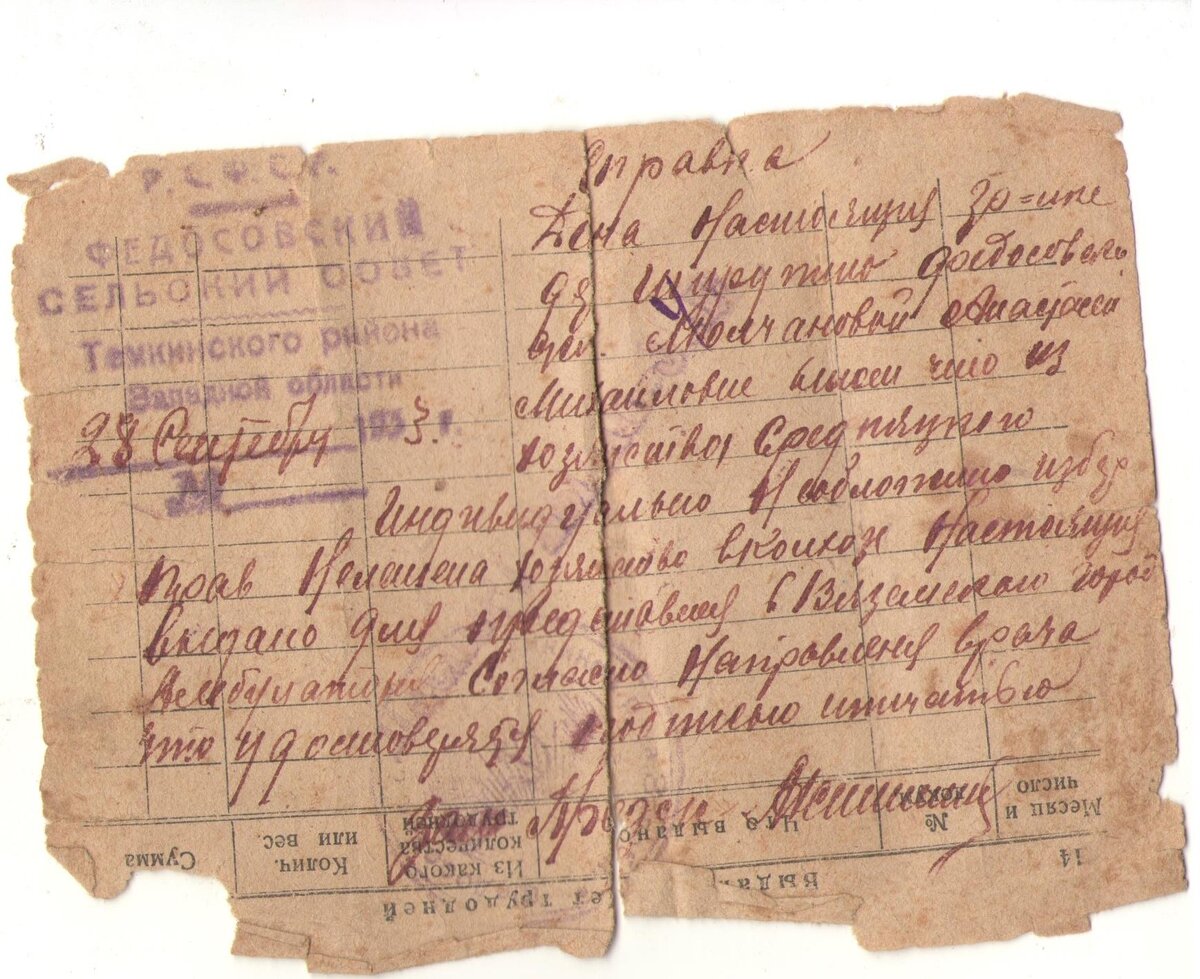 Р.С.Ф.С.Р.
ФЕДОСОВСКИЙ
СЕЛЬСКИЙ СОВЕТ
Темкинского района
Западной области
28 Сентебру 1933 г.
№
Справка
Дена Настоящия гр=ине
дер. Федосовсково
сел. Молчановой Анастасеи
Михаиловне втом что из
хозяйства Средняцкого
Индивидуально Необложино избер
прав Нелешена хозяйство вколхозе Настоящия
выдано для предтавленя в Вяземскою город
Амбулаторию Согласно Направленя врача
что удостоверяется подписью ипичатью
Месяц и число
№
Что выдано
Из какого количества трудодней
Колич. или вес.
Сумма
14
Выда
ет трудодней